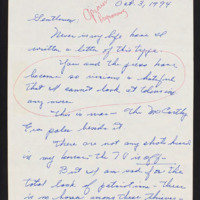 Oct. 3, 1974
Gentlemen
Never in my life have I
written a letter of this type.
You and the press have
become so vicious & hateful
that I cannot look at television
any more.
This is worse – the McCarthy
Era pales beside it
There are not any shots heard
in my house – the TV is off –
But I am sad for the
total lack of patriotism – there
is no honor among these thieves –